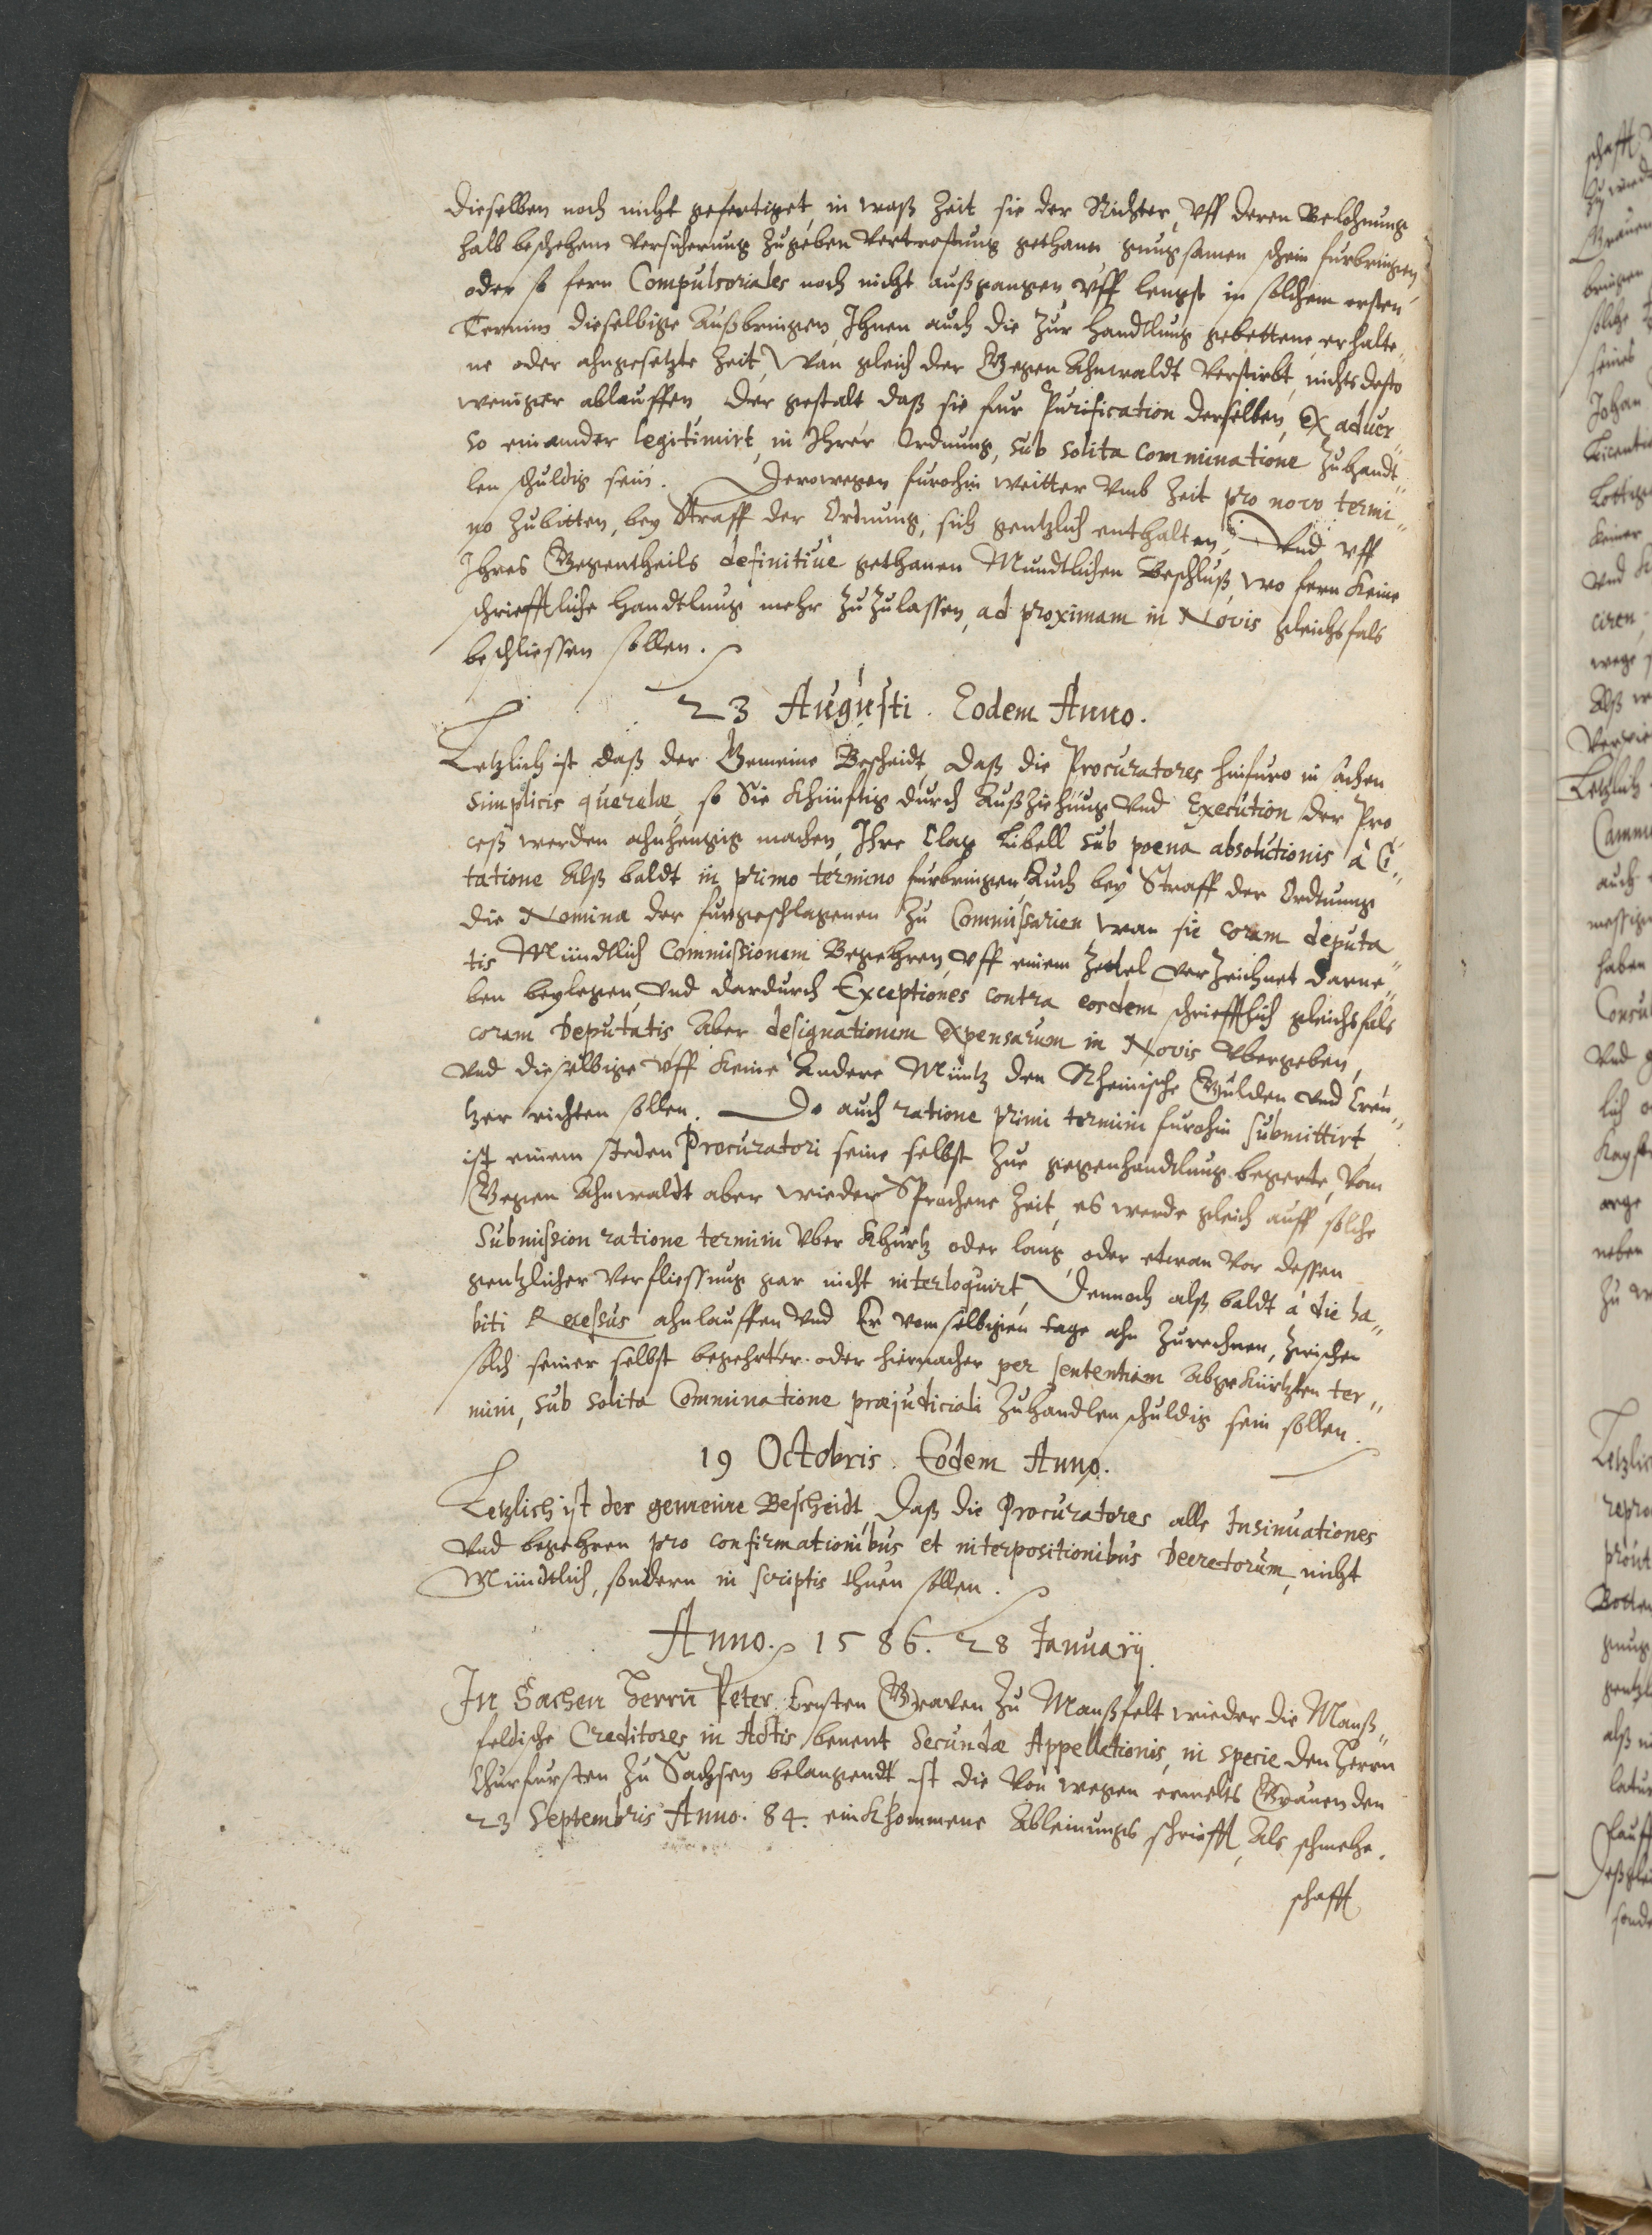 dieselben noch nicht gefertiget, in waß Zeit sie der Richter, vff deren Belohnung
halb beschehene Versicherung zugeben Vertrostung gethann gnugsamen schein furbringen,
oder so fern Compulsoriales noch nicht außgangen, vff lengst in solchem ersten
Termin dieselbige außbringen, Ihnen auch die zur Handtlung gebettene, erhalte„
ne oder ahngesetzte Zeit, Wan gleich der Gegen Ahnwaldt Verstirbt, nichts desto
weniger ablauffen, der gestalt daß sie fur Purification derselben, Ex aduer„
so einander legitimirt, in Ihrer Ordnung, sub solita comminatione zuhandt„
len schuldig sein. Derowegen furohin weitter vmb Zeit pro novo termi„
no zubitten, bey Straff der Ordnung, sich gentzlich enthalten, Vnd vff
Ihres Gegentheils definitiue gethanen Mundtlichen Beschluß, wo fern keine
schriefftliche Handtlung mehr zuzulassen, ad proximam in Novis gleichsfals
beschliessen sollen.
23 Augusti. Eodem Anno.
Letzlich ist daß der Gemeine Bescheidt, daß die Procuratores hinfuro in sachen
simplicis querelæ, so Sie khünftig durch Außziehung vnd Execution der Pro
ceß werden ahnhengig machen, Ihre Clag Libell sub poena absolutionis à Ci„
tatione Alß baldt in primo termino furbringen, Auch bey Straff der Ordnung
die Nomina der furgeschlagenen zu Commissarien wan sie coram deputa„
tis Mündtlich Commissionem Begehren, vff einem Zettel verzeichnet darne„
ben beylegen, vnd dardurch Exceptiones contra eosdem schriefftlich gleichsfals
coram Deputatis, Aber designationem expensarum in Novis vbergeben,
vnd dieselbige vff keine andere Müntz den Rheinische Gulden vnd Creu„
tzer richten sollen. Do auch ratione primi termini furohin submittirt,
ist einem Jeden Procuratori seine selbst zur gegenhandtlung begerte, vom
Gegen Ahnwaldt aber wieder Sprochene Zeit, es werde gleich auff solche
Submission ratione termini vber khurtz oder lang, oder etwan vor dessen
gentzlicher Verfliessung gar nicht interloquirt, Dennoch alß baldt à die ha„
biti Recessus ahnlauffen vnd Er vom selbigen tage ahn zurechnen, zwischen
solch seiner selbst begehrter. oder hiernacher per sententiam abgekürtzten ter„
mini, sub solita Comminatione præjudiciali zuhandlen schuldig sein sollen.
19 Octobris. Eodem Anno.
Letzlich ist der gemeine Bescheidt, daß die Procuratores alle Insinuationes
vnd begehren pro confirmationibus et interpositionibus Decretorum, nicht
Mündtlich, sondern in scriptis thuen sollen.
Anno. 1586. 28 Januarij.
In Sachen Herrn Peter Ernsten Graven zu Manßfelt wieder die Manß„
feldische Creditores in Actis benent Secundæ Appellationis, in specie den Herrn
Churfursten zu Sachsen belangendt ist die von wegen ermelts Grauen den
23 Septembris Anno. 84. einkhommene Ableinungs schriefft, Als schmehe„
schafft